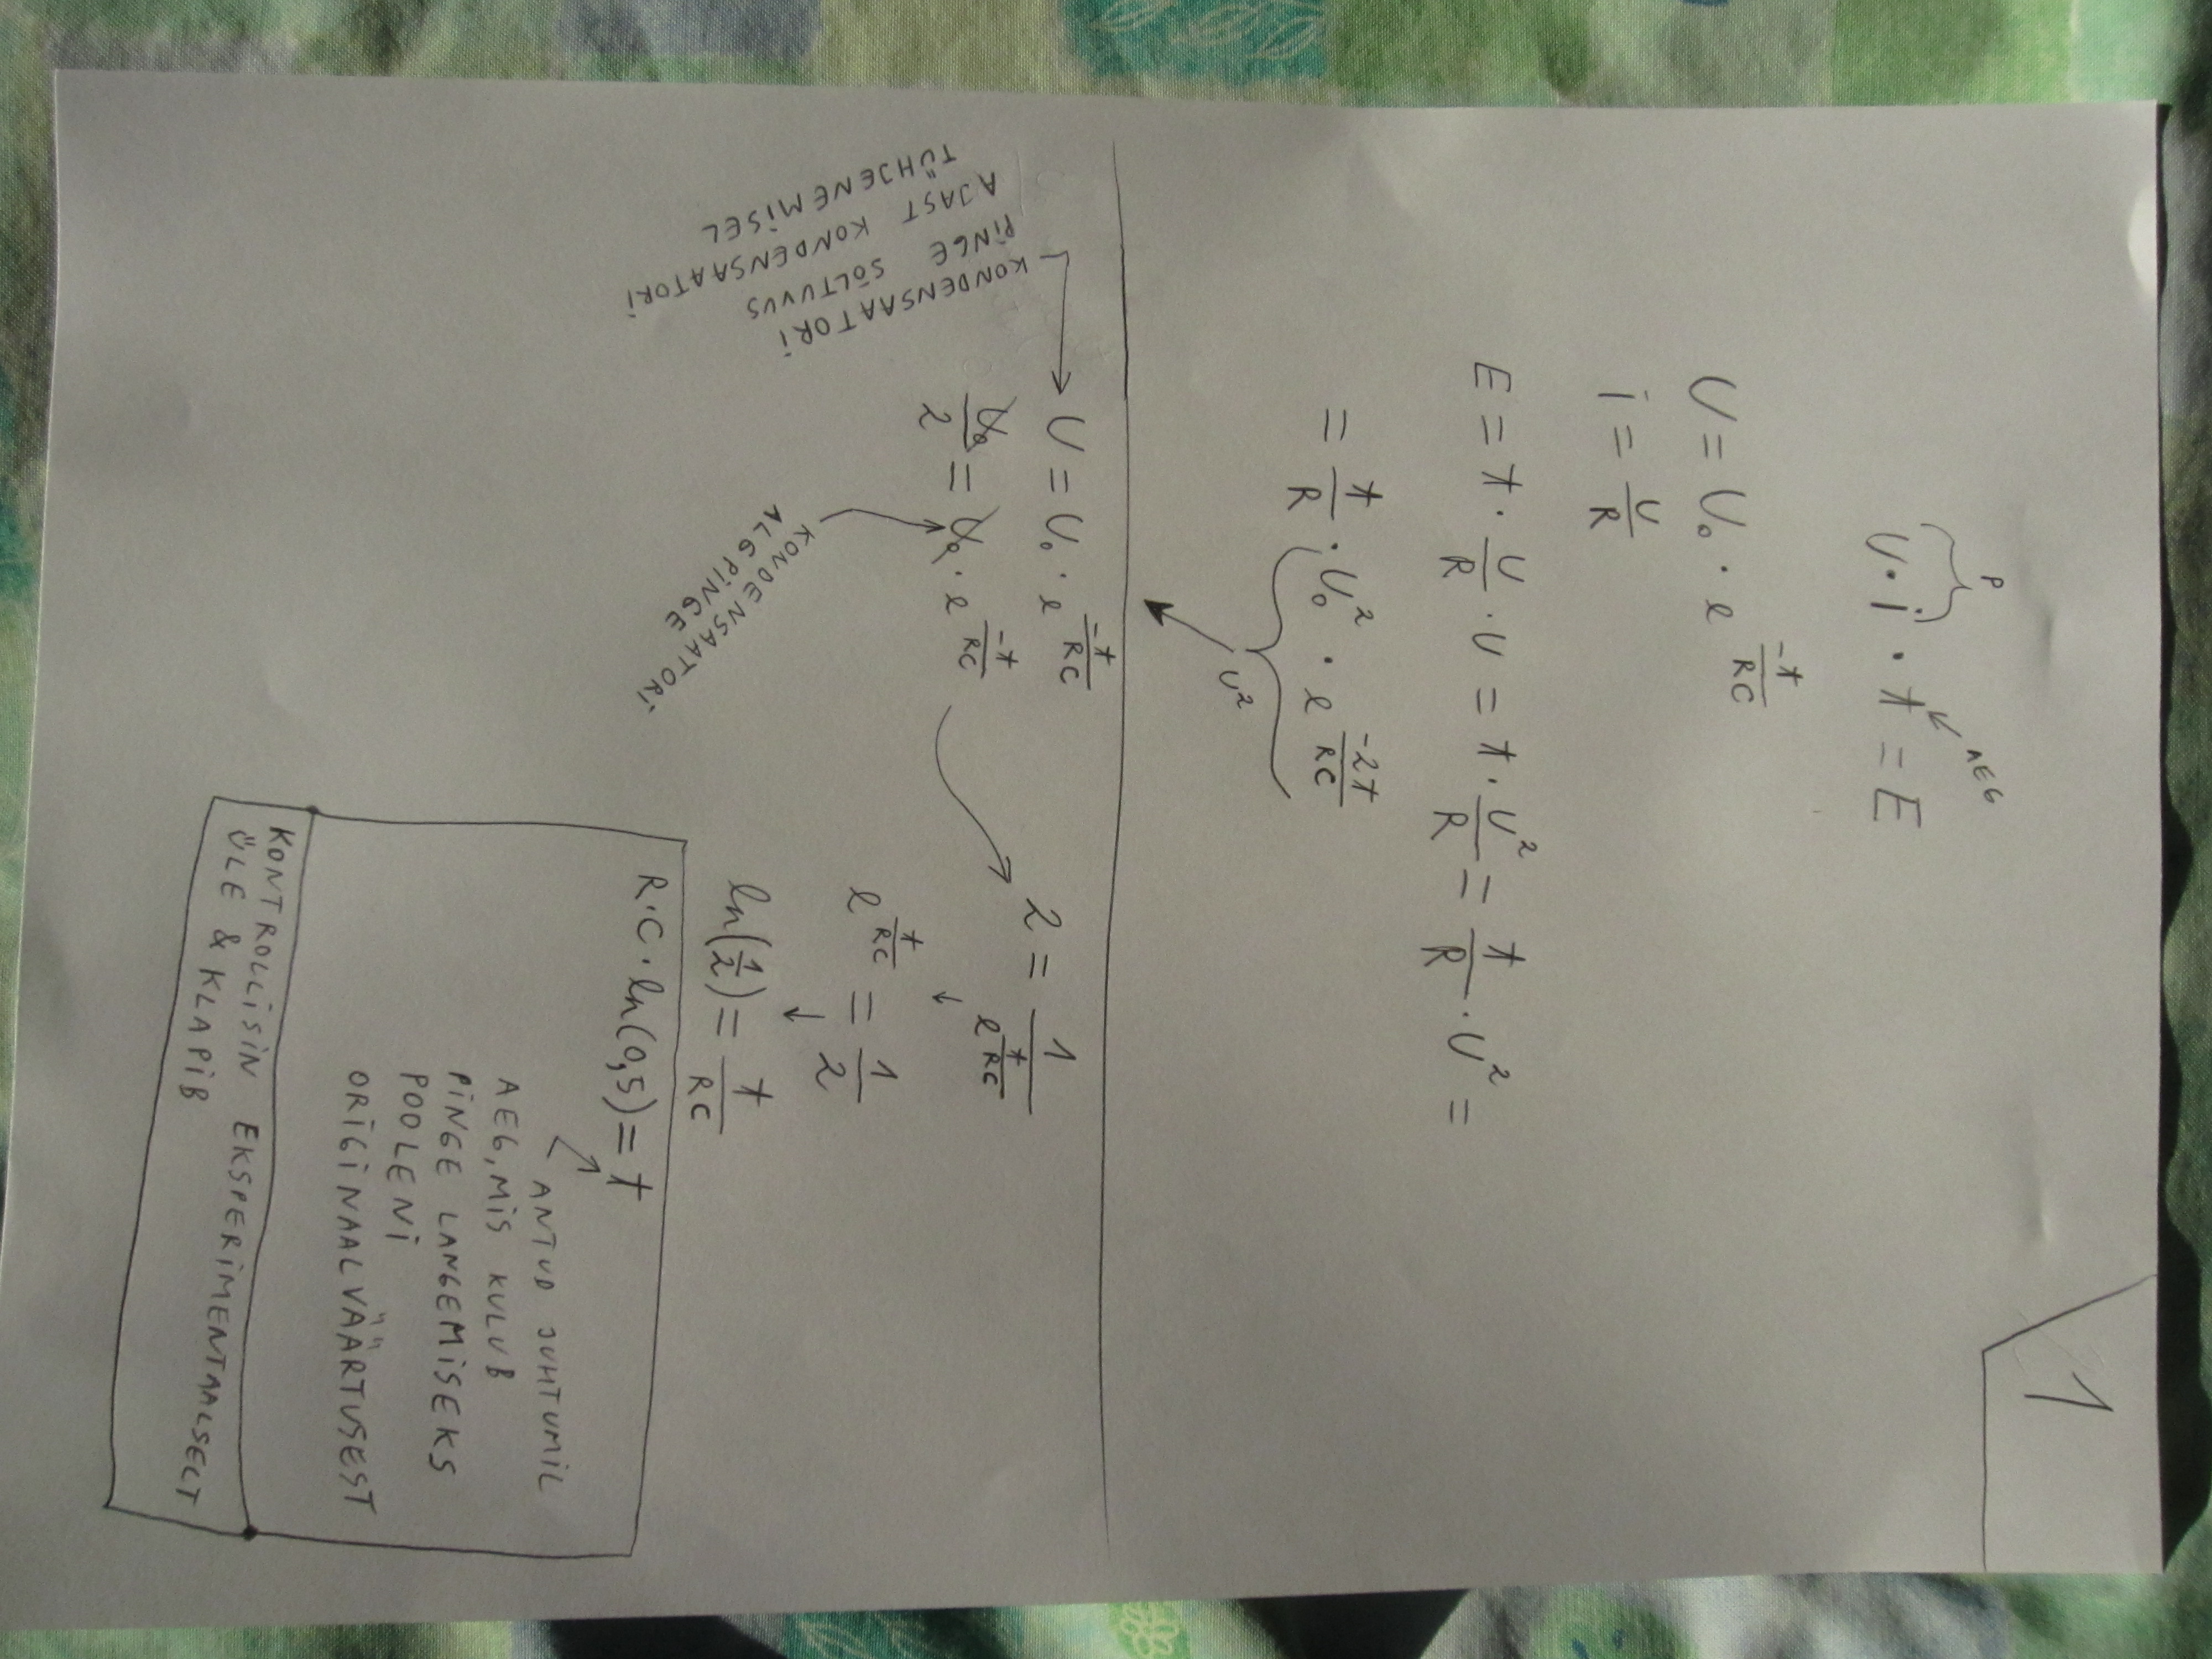 1
P
U · i · t = E
AEG
U = U₀ · e^(-t/RC)
i = U/R
E = t · U/R · U = t · U²/R = t/R · U² =
= t/R · U₀² · e^(-2t/RC)
U²
KONDENSAATORI
PINGE SÕLTUVUS
AJAST KONDENSAATORI
TÜHJENEMISEL
U = U₀ · e^(-t/RC)
U₀/2 = U₀ · e^(-t/RC)
KONDENSAATORI
ALGPINGE
2 = 1/e^(t/RC)
e^(t/RC) = 1/2
ln(1/2) = t/RC
R·C·ln(0,5) = t
ANTUD JUHTUMIL
AEG, MIS KULUB
PINGE LANGEMISEKS
POOLENI
ORIGINAALVÄÄRTUSEST
KONTROLLISIN EKSPERIMENTAALSELT
ÜLE & KLAPIB